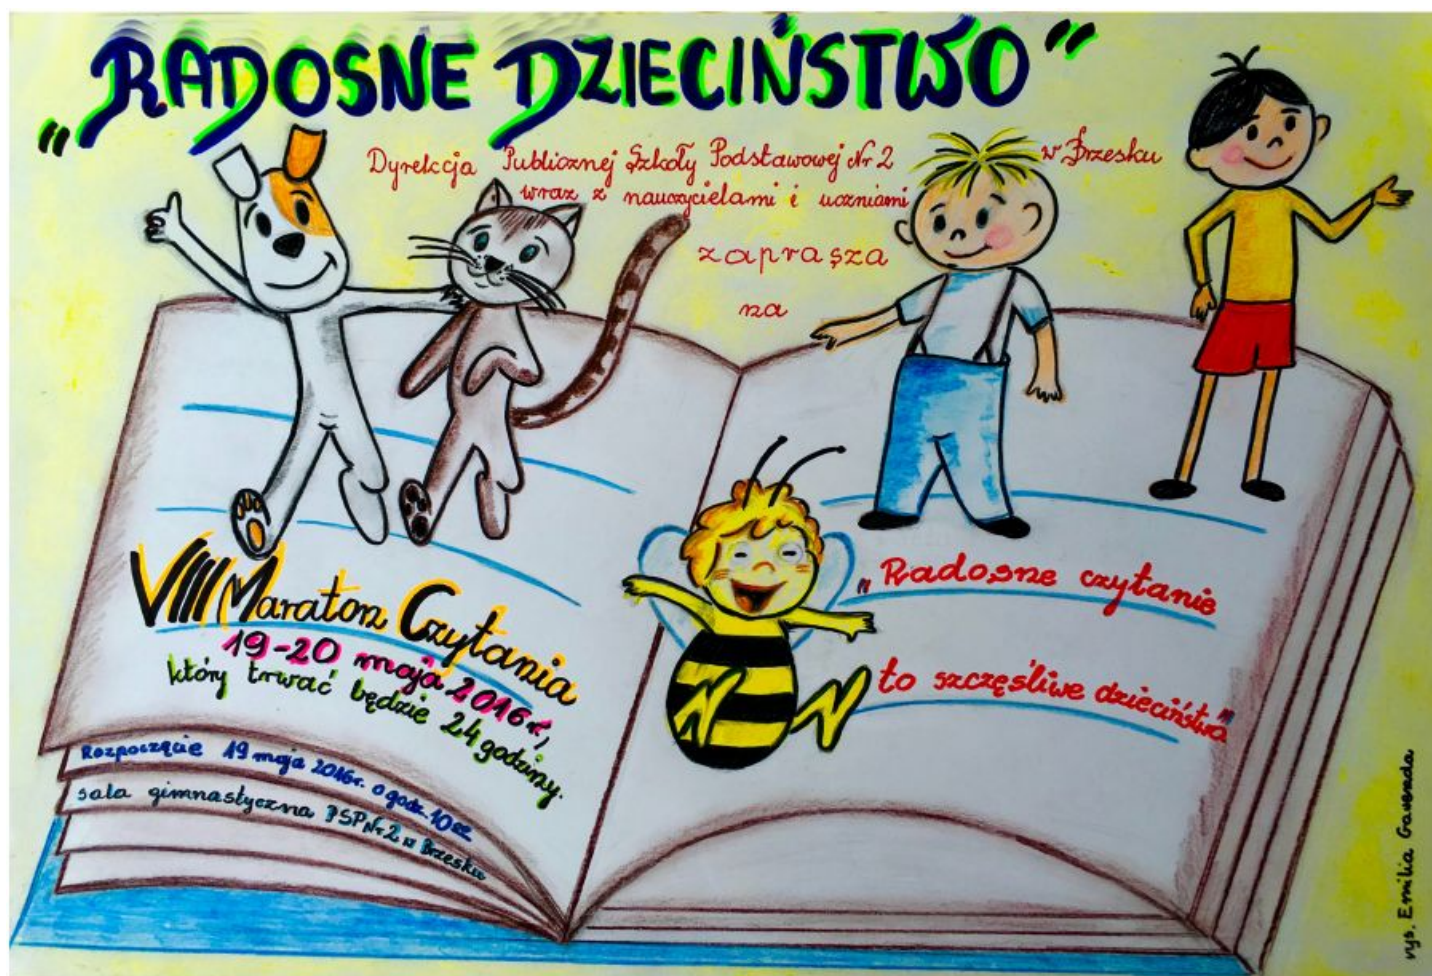 "RADOSNE DZIECIŃSTWO"
Dyrekcja Publicznej Szkoły Podstawowej Nr 2 w Brzesku
wraz z nauczycielami i uczniami
zaprasza
na
VIII Maraton Czytania
19-20 maja 2016r.,
który trwać będzie 24 godziny.
Rozpoczęcie 19 maja 2016r. o godz. 10⁰⁰
sala gimnastyczna PSP Nr 2 w Brzesku
"Radosne czytanie
to szczęśliwe dzieciństwo"
rys. Emilia Gawenda